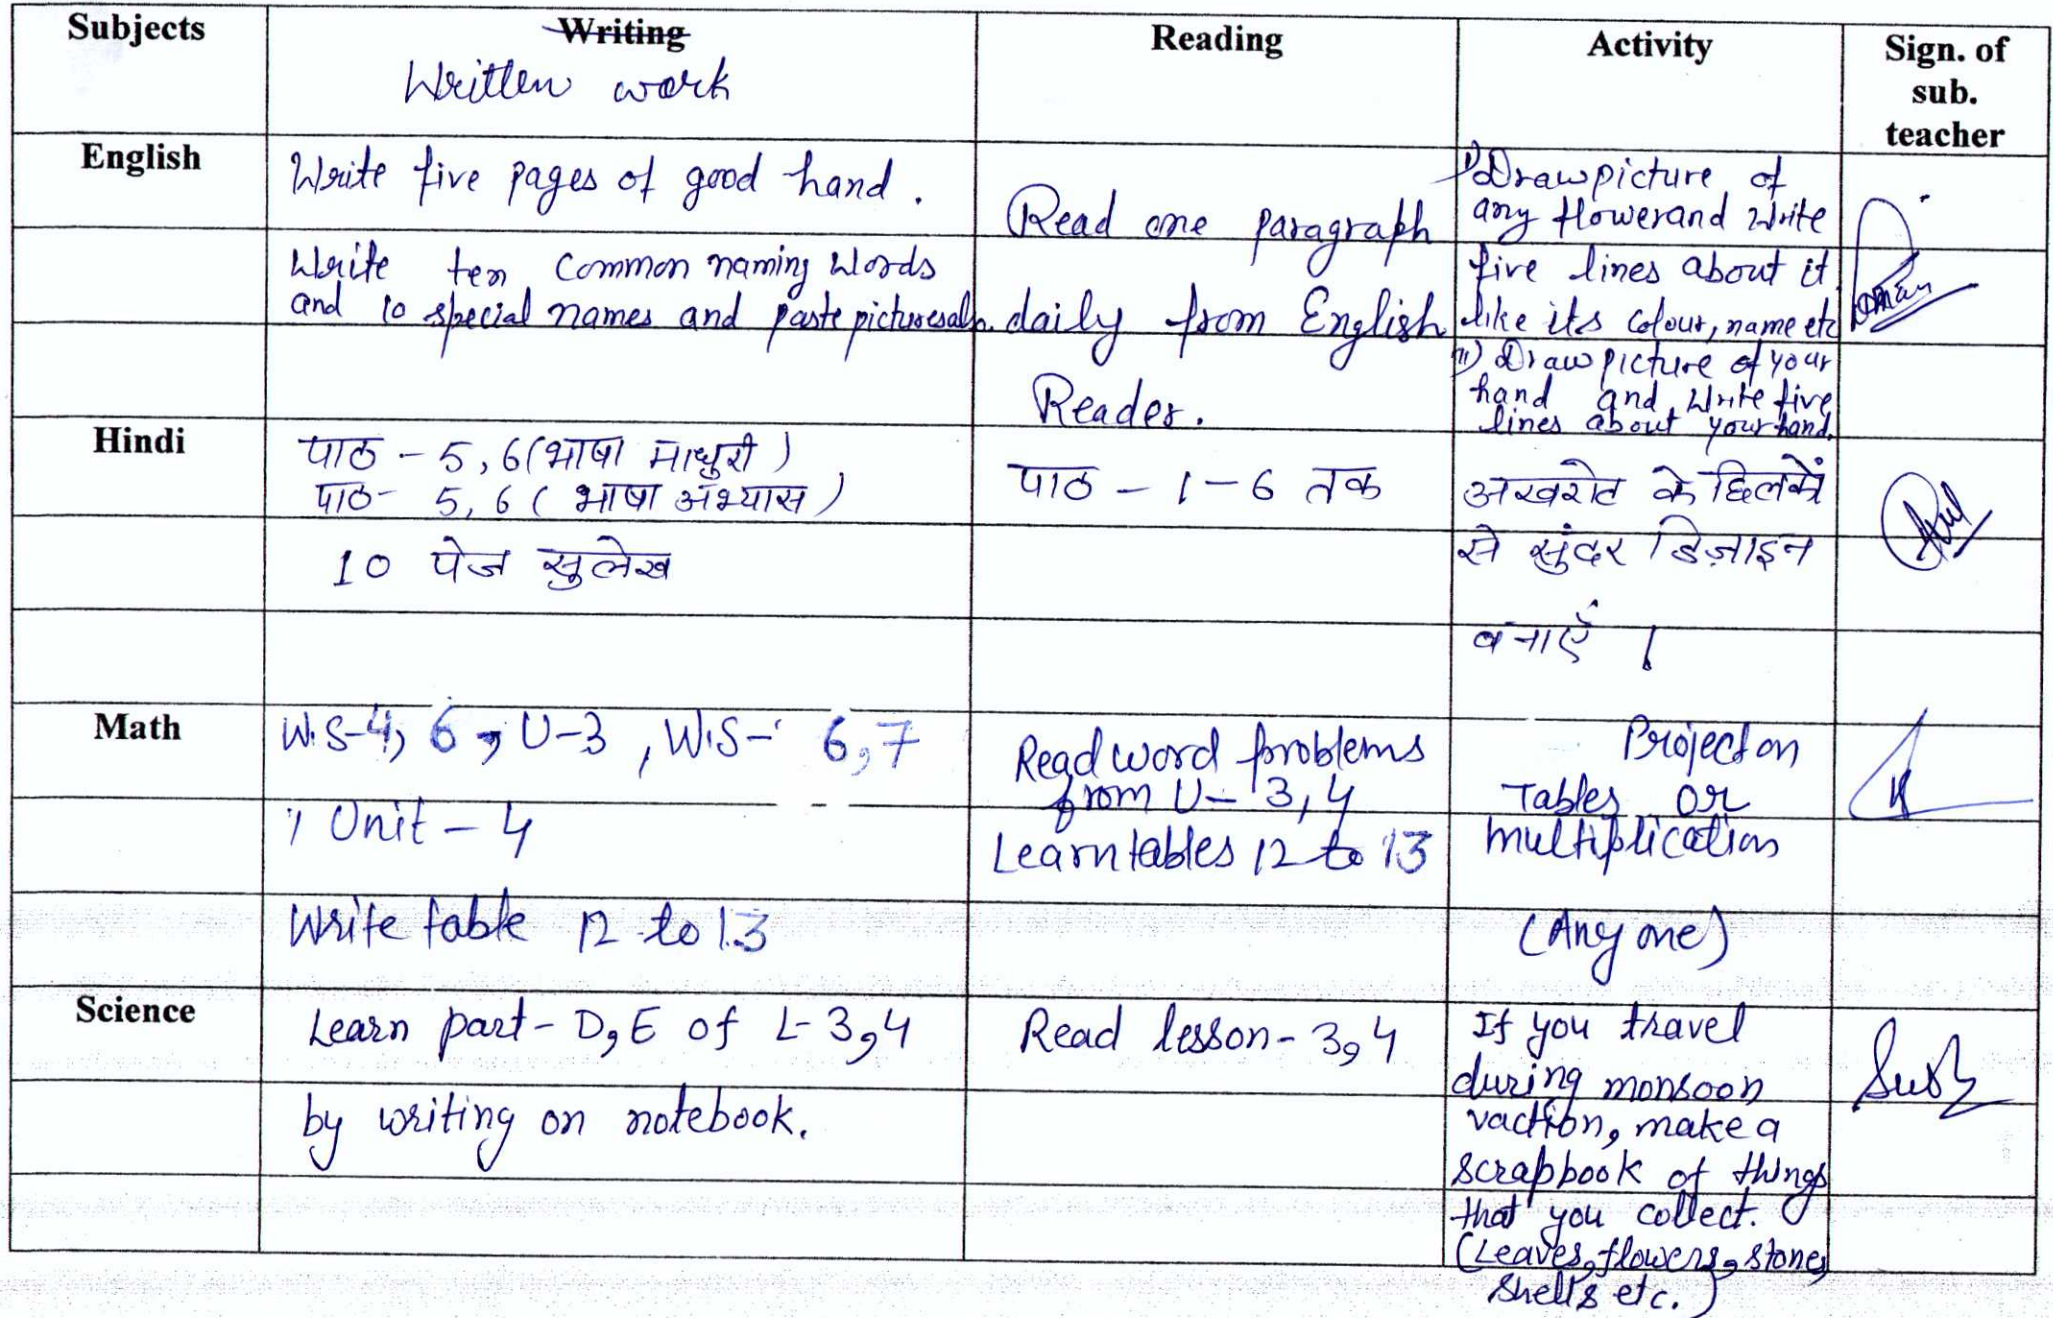 Subjects
Writing
Written work
Reading
Activity
Sign. of
sub.
teacher
English
Write five pages of good hand.
Write ten common naming words
and 10 special names and paste pictures
Read one paragraph
daily from English
Reader.
i) Draw picture of
any flower and write
five lines about it
like its colour, name etc
ii) Draw picture of your
hand and write five
lines about your hand.
Hindi
पाठ - 5, 6 (भाषा माधुरी)
पाठ - 5, 6 ( भाषा अभ्यास )
10 पेज सुलेख
पाठ - 1 - 6 तक
अखरोट के छिलकों
से सुंदर डिज़ाइन
बनाएँ ।
Math
W.S-4, 6, U-3, W.S- 6, 7
, Unit - 4
Write table 12 to 13
Read word problems
from U- 3, 4
Learn tables 12 to 13
Project on
Tables or
multiplication
(Any one)
Science
Learn part - D, E of L-3, 4
by writing on notebook.
Read lesson - 3, 4
If you travel
during monsoon
vaction, make a
scrapbook of things
that you collect.
(Leaves, flowers, stones
shells etc.)